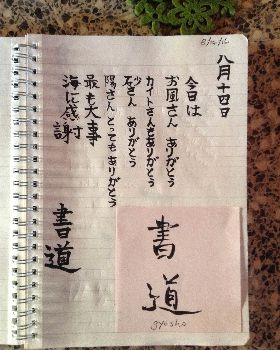 八月十四日
今日は
お風さん ありがとう
カイトさんもありがとう
石さん ありがとう
陽さん とってもありがとう
最も大事
海に感謝
書道
書道
gyosho